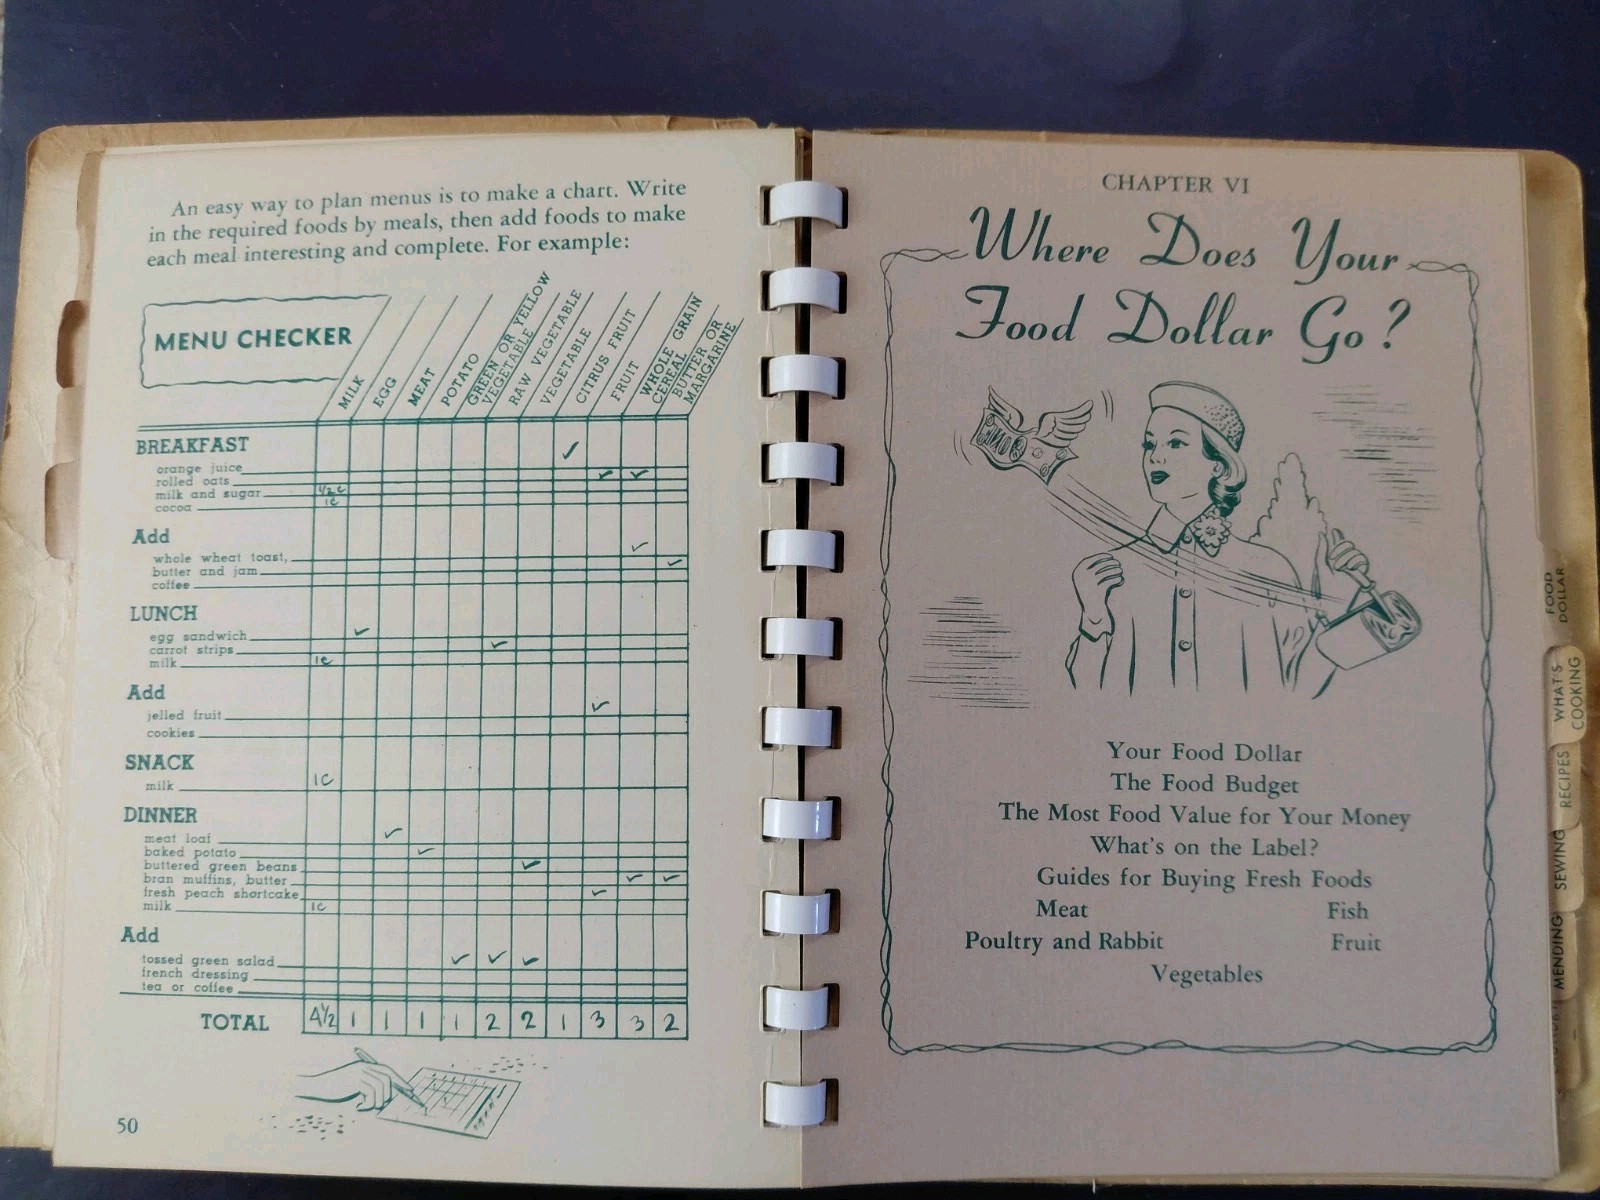 An easy way to plan menus is to make a chart. Write
in the required foods by meals, then add foods to make
each meal interesting and complete. For example:
MENU CHECKER
MILK
EGG
MEAT
POTATO
GREEN OR YELLOW
VEGETABLE
RAW VEGETABLE
VEGETABLE
CITRUS FRUIT
FRUIT
WHOLE GRAIN
CEREAL
BUTTER OR
MARGARINE
BREAKFAST
orange juice ✓
rolled oats ✓ ✓
milk and sugar 1/2 c
cocoa 1c
Add
whole wheat toast, ✓
butter and jam ✓
coffee
LUNCH
egg sandwich ✓
carrot strips ✓
milk 1c
Add
jelled fruit ✓
cookies
SNACK
milk 1c
DINNER
meat loaf ✓
baked potato ✓
buttered green beans ✓
bran muffins, butter ✓ ✓
fresh peach shortcake ✓
milk 1c
Add
tossed green salad ✓ ✓ ✓
french dressing
tea or coffee
TOTAL 4 1/2 1 1 1 1 2 2 1 3 3 2
50
CHAPTER VI
Where Does Your
Food Dollar Go?
Your Food Dollar
The Food Budget
The Most Food Value for Your Money
What's on the Label?
Guides for Buying Fresh Foods
Meat Fish
Poultry and Rabbit Fruit
Vegetables
FOOD
DOLLAR
WHAT'S
COOKING
RECIPES
SEWING
MENDING